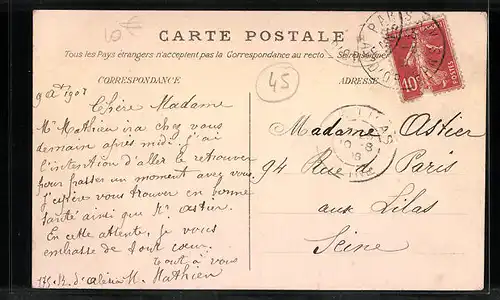 10€
CARTE POSTALE
Tous les Pays étrangers n'acceptent pas la Correspondance au recto.
CORRESPONDANCE
ADRESSE
45
PARIS
10c
9 At 1908
Chère Madame
Me Mathieu ira chez vous
demain après midi, j'ai
l'intention d'aller le retrouver
pour passer un moment avec vous
j'espère vous trouver en bonne
santé ainsi que Mr Astier.
En cette attente, je vous
embrasse de tout cœur.
tout à vous
M. Mathieu
Madame Astier
94 Rue de Paris
aux Lilas
Seine